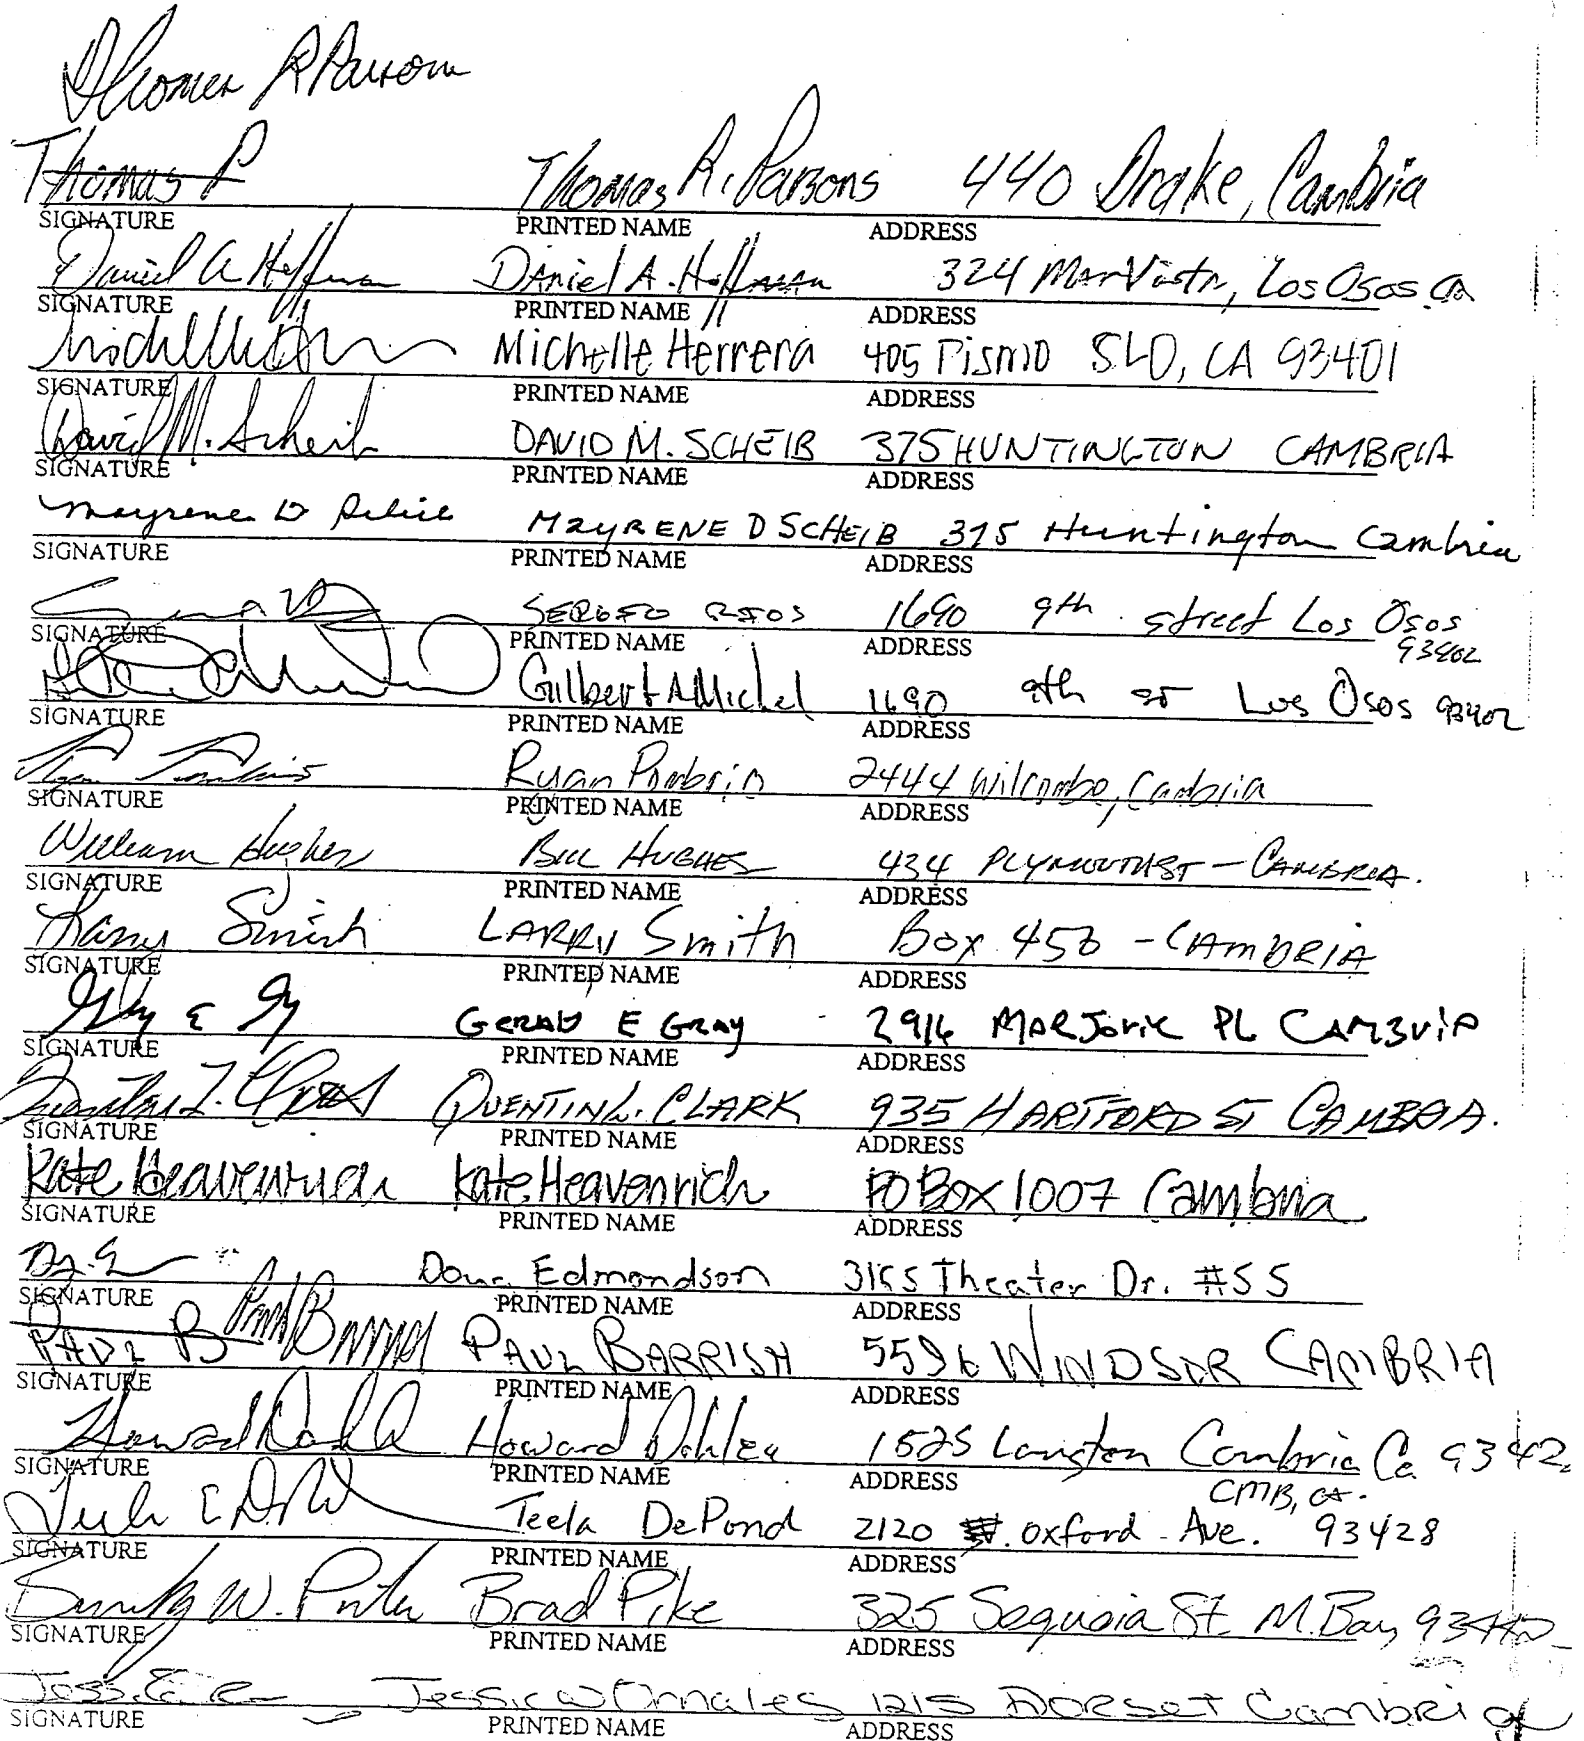 Thomas R Parsons
Thomas P Thomas R. Parsons 440 Drake, Cambria
SIGNATURE PRINTED NAME ADDRESS
Daniel A Hoffman DAniel A. Hoffman 324 MarVista, Los Osos Ca
SIGNATURE PRINTED NAME ADDRESS
Michelle Herrera 405 Pismo SLO, CA 93401
SIGNATURE PRINTED NAME ADDRESS
David M. Scheib DAVID M. SCHEIB 375 HUNTINGTON CAMBRIA
SIGNATURE PRINTED NAME ADDRESS
Mayrene D Scheib MayRENE D SCHEIB 375 Huntington Cambria
SIGNATURE PRINTED NAME ADDRESS
SERGIO RIOS 1690 9th street Los Osos
93402
SIGNATURE PRINTED NAME ADDRESS
Gilbert A Michel 1690 9th st Los Osos 93402
SIGNATURE PRINTED NAME ADDRESS
Ryan 2444 Cambria
SIGNATURE PRINTED NAME ADDRESS
William Hughes BILL HUGHES 434 PLYMOUTH ST - CAMBRIA.
SIGNATURE PRINTED NAME ADDRESS
Larry Smith LARRY Smith Box 458 - CAMBRIA
SIGNATURE PRINTED NAME ADDRESS
E GRAY 2916 MARJorie PL
SIGNATURE PRINTED NAME ADDRESS
Quentin L. Clark QUENTIN L. CLARK 935 HARTFORD ST CAMBRIA.
SIGNATURE PRINTED NAME ADDRESS
Kate Heavenrich Kate Heavenrich PO Box 1007 Cambria
SIGNATURE PRINTED NAME ADDRESS
Edmondson Theater Dr. #55
SIGNATURE PRINTED NAME ADDRESS
PAUL B PAUL BARRISH 5596 WINDSOR CAMBRIA
SIGNATURE PRINTED NAME ADDRESS
Howard 1525 Langton Cambria Ca
SIGNATURE PRINTED NAME ADDRESS
CMB, ca.
Teela DePond 2120 Oxford Ave. 93428
SIGNATURE PRINTED NAME ADDRESS
Brad Pike 325 Sequoia St. M. Bay 93442
SIGNATURE PRINTED NAME ADDRESS
Jessica Ornales 1215 DORSET Cambria
SIGNATURE PRINTED NAME ADDRESS